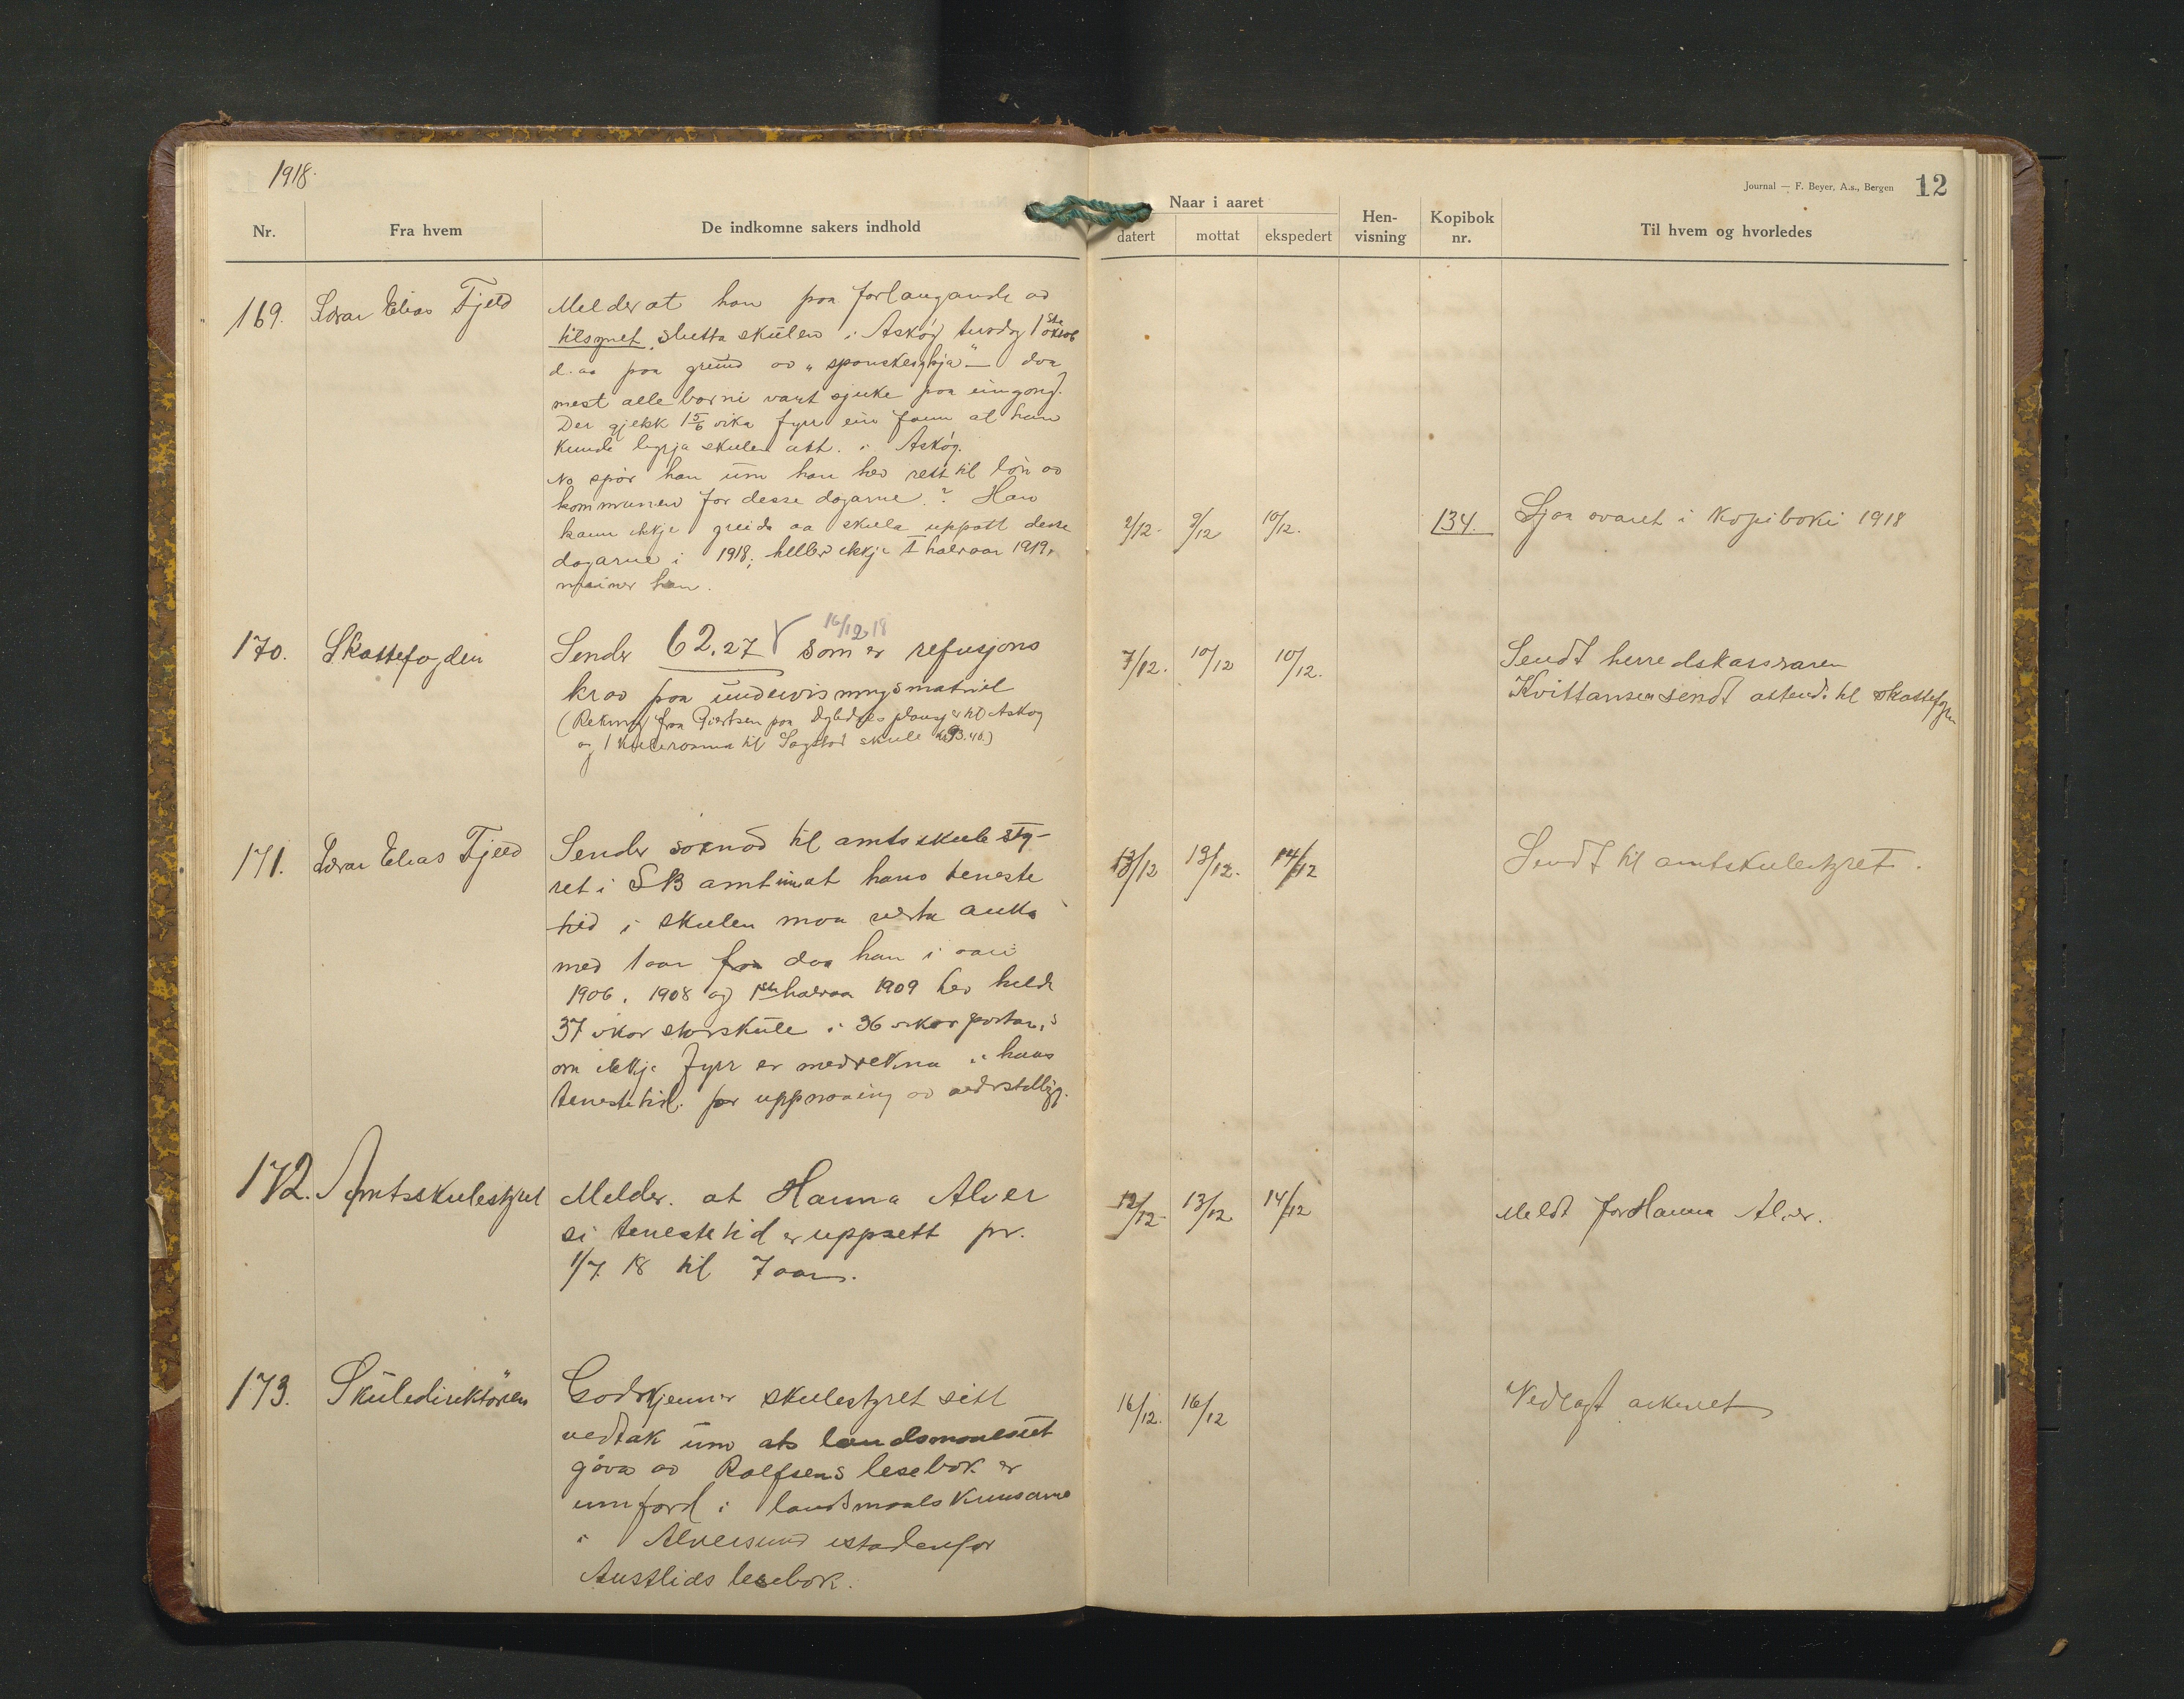 1918.
Journal — F. Beyer, A.s., Bergen 12
Nr. Fra hvem De indkomne sakers indhold
Naar i aaret
datert mottat ekspedert
Hen-
visning
Kopibok
nr.
Til hvem og hvorledes
169. Lærar Elias Fjeld
Melder at han paa forlangande av
tilsynet slutta skulen i Askøy tysdag 1ste oktob
d. aa paa grund av „sponskesykja" — daa
mest alle borni vart sjuke paa eingong.
Der gjekk 1 5/6 vika fyrr ein fann at han
kunde byrja skulen att i Askøy.
No spør han um han hev rett til løn av
kommunen for desse dagarne? Han
kann ikkje greida aa skula uppatt desse
dagarne i 1918; heller ikkje 1 halvaar 1919,
meiner han.
2/12. 9/12 10/12. 134. Sjaa svaret i Kopiboki 1918
170. Skattefogden
16/12 18
Sender 62,27 som er refusjons
krav paa undervisningsmatriel
(Rekning fraa Giertsen paa Dybdahls plansjer til Askøy
og 1 kuleramma til Sagstad skule kr 93.40.)
7/12. 10/12 10/12.
Sendt herredskasseraren
Kvittansen sendt attende til skattefogden
171. Lærar Elias Fjeld
Sender søknad til amtsskulesty-
ret i SB amt um at hans teneste
tid i skulen maa verta auka
med 1 aar fraa daa han i aari
1906, 1908 og 1ste halvaar 1909 hev halde
37 vikor storskule i 36 vikor postar, s
om ikkje fyrr er medrekna i hans
tenestetid for uppnaaing av alderstillegg.
13/12 13/12. 14/12
Sendt til amtskulestyret.
172. Amtsskulestyret
Melder at Hanna Alver
si tenestetid er uppsett pr.
1/7. 18 til 7 aar.
12/12. 13/12 14/12
Meldt for Hanna Alver.
173. Skuledirektøren
Godkjenner skulestyret sitt
vedtak um at landsmaalsut
gåva av Rolfsens lesebok er
innførd i landsmaalskrinsarne
i Alversund istadenfor
Austlids lesebok.
16/12. 16/12
Vedlagt arkivet